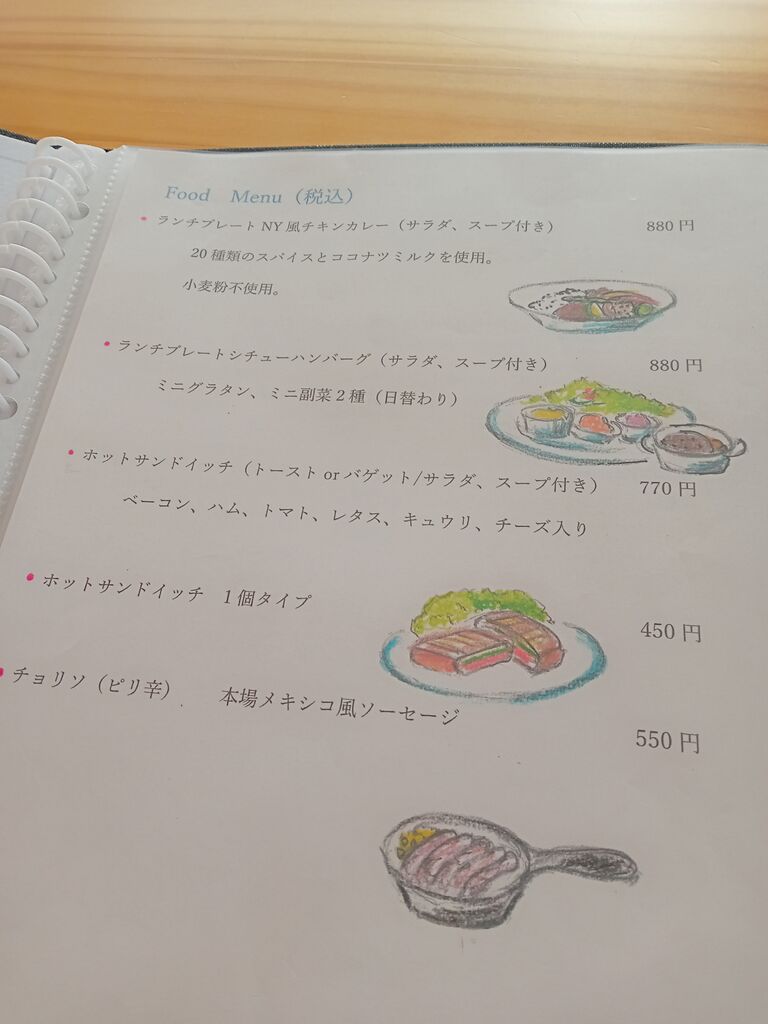 Food Menu（税込）
ランチプレート NY 風チキンカレー（サラダ、スープ付き） 880 円
20 種類のスパイスとココナツミルクを使用。
小麦粉不使用。
ランチプレートシチューハンバーグ（サラダ、スープ付き） 880 円
ミニグラタン、ミニ副菜 2 種（日替わり）
ホットサンドイッチ（トースト or バゲット/サラダ、スープ付き） 770 円
ベーコン、ハム、トマト、レタス、キュウリ、チーズ入り
ホットサンドイッチ 1 個タイプ 450 円
チョリソ（ピリ辛） 本場メキシコ風ソーセージ 550 円